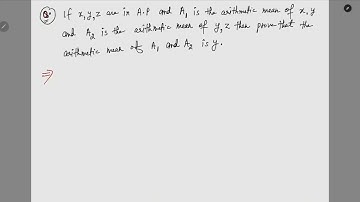 Q. If x, y, z are in A.P and A₁ is the arithmetic mean of x, y
and A₂ is the arithmetic mean of y, z then prove that the
arithmetic mean of A₁ and A₂ is y.
⇒